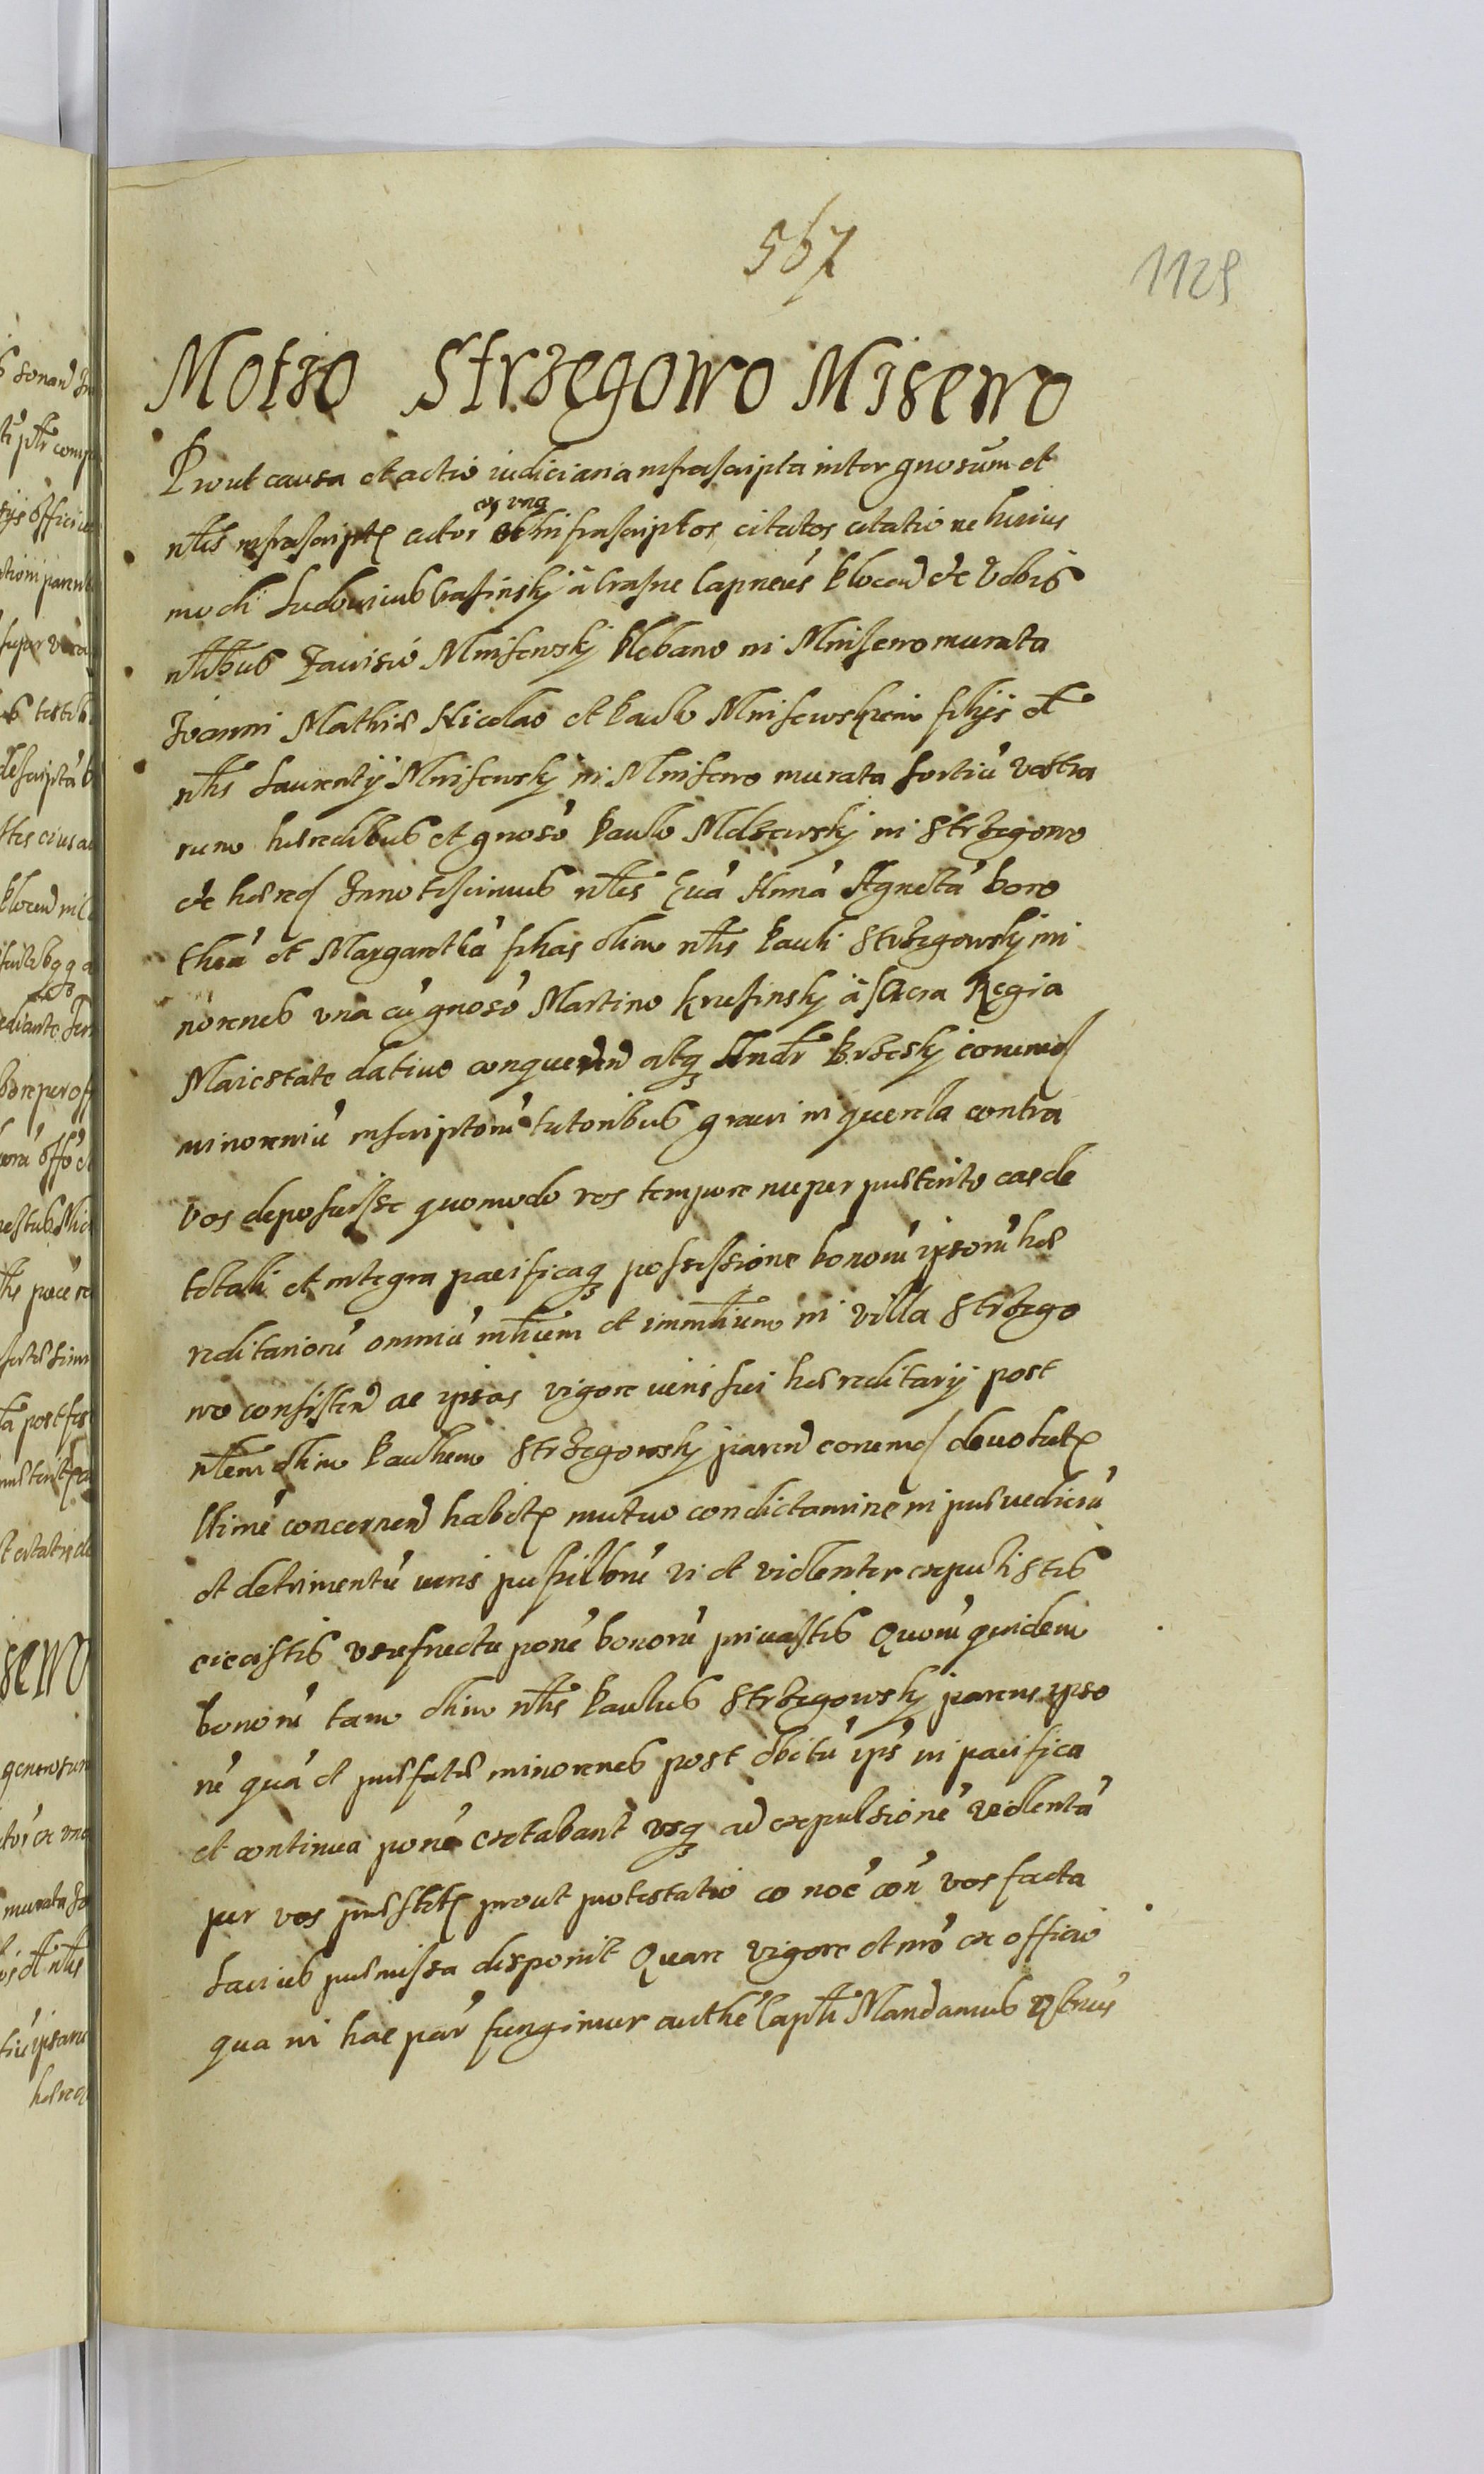 567
1129
Motio Strzegowo Misewo
Prout causa et actio iudiciaria infrascripta inter gnosum et
nlis infrascript actor ex una et infrascriptos citatos citatione huius
modi Ludovicus Crasinsky a Crasne Capneus Plocen etc Vobis
nlibus Jarisio Mnisewsky Plebano in Mnisewo murata
Joanni Mathiae Nicolao et Paulo Mnisewskiem filijs
nlis Laurentij Mnisewsky in Mnisewo murata sortiu vestra
rum haeredibus et gnoso Paulo Mdzewsky in Strzegowo
etc haered Innotescimus nles Eva Anna Agneta Doro
thea et Margaretha filias olim nlis Pauli Strzegowsky mi
norenes una cu gnoso Martino Krusinsky a sacra Regia
Maiestate dativo conqueren atq Andr Brzesky eorumd
minoreniu inscriptoru tutoribus gravi in querela contra
vos deposuisse quomodo vos tempore nuper praeterito easde
totali et integra pacificaq possessione bonoru ipsoru hae
reditarioru omniu mlium et immlium in villa Strzego
wo consisten ac ipsas vigore iuris sui haereditarij post
nlem olim Paulum Strzegowsky paren eorumd devolut
llime concernen habit mutuo condictamine in praeiudiciu
et detrimentu iuris pupilloru vi et violenter expulistis
eiecistis usufructu pone bonoru privastis Quoru quidem
bonoru tam olim nlis Paulus Strzegowsky parens ipso
ru qua et praefatae minorenes post obitu ips in pacifica
et continua pone extabant usq ad expulsione violenta
per vos praestit prout protestatio eo noe con vos facta
Latius praemissa disponit Quare vigore et nro ex officio
qua in hac par fungimur authe Capli Mandamus